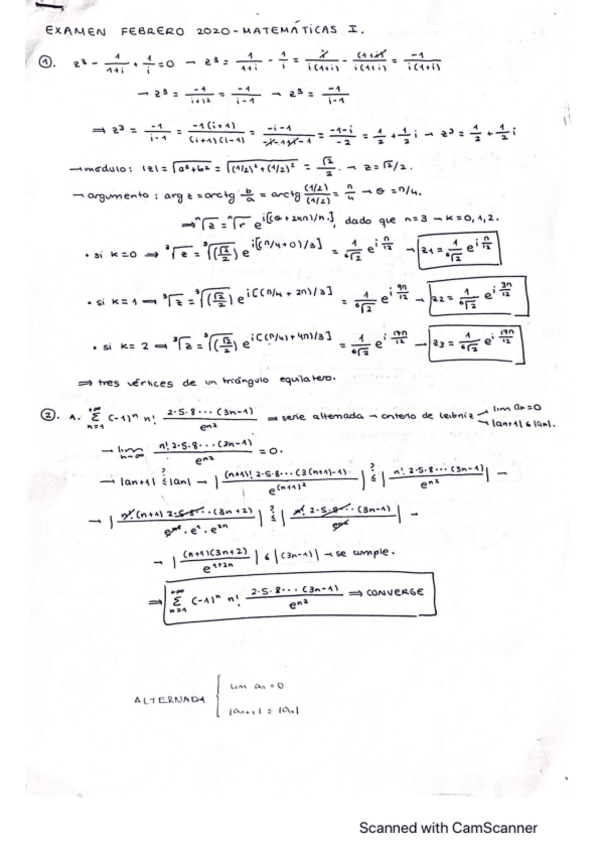 EXAMEN FEBRERO 2020 - MATEMÁTICAS I.
①. z³ - 1/(1+i) + 1/i = 0 → z³ = 1/(1+i) - 1/i = i/(i(1+i)) - (1+i)/(i(1+i)) = -1/(i(1+i))
→ z³ = -1/(i+i²) = -1/(i-1) → z³ = -1/(i-1)
⇒ z³ = -1/(i-1) = -1(i+1)/((i+1)(i-1)) = (-i-1)/(-1-1) = (-1-i)/-2 = 1/2 + 1/2 i → z³ = 1/2 + 1/2 i
→ módulo: |z| = √(a²+b²) = √((1/2)²+(1/2)²) = √2/2. → z = √2/2.
→ argumento: arg z = arctg b/a = arctg (1/2)/(1/2) = π/4 → θ = π/4.
⇒ ⁿ√z = ⁿ√r e^(i[(θ + 2kπ)/n]), dado que n=3 → k=0,1,2.
• si k=0 ⇒ ³√z = ³√(√2/2) e^(i[(π/4+0)/3]) = 1/⁶√2 e^(i π/12) → z1 = 1/⁶√2 e^(i π/12)
• si k=1 → ³√z = ³√(√2/2) e^(i[(π/4 + 2π)/3]) = 1/⁶√2 e^(i 9π/12) → z2 = 1/⁶√2 e^(i 3π/12)
• si k=2 → ³√z = ³√(√2/2) e^(i[(π/4)+4π)/3]) = 1/⁶√2 e^(i 17π/12) → z3 = 1/⁶√2 e^(i 17π/12)
⇒ tres vértices de un triángulo equilátero.
②. A. Σ_(n=1)^(+∞) (-1)ⁿ n! 2·5·8···(3n-1)/e^(n²) ⇒ serie alternada → criterio de Leibniz lim an = 0
|an+1| ≤ |an|.
→ lim_(n→∞) n! 2·5·8···(3n-1)/e^(n²) = 0.
→ |an+1| ≤? |an| → |(n+1)! 2·5·8···(3(n+1)-1)/e^((n+1)²)| ≤? |n! 2·5·8···(3n-1)/e^(n²)| →
→ |n!(n+1) 2·5·8···(3n+2)/(e^(n²)·e¹·e^(2n))| ≤? |n! 2·5·8···(3n-1)/e^(n²)| →
→ |(n+1)(3n+2)/e^(1+2n)| ≤ |(3n-1)| → se cumple.
⇒ Σ_(n=1)^(+∞) (-1)ⁿ n! 2·5·8···(3n-1)/e^(n²) ⇒ CONVERGE
ALTERNADA
lim an = 0
|an+1| ≤ |an|
Scanned with CamScanner